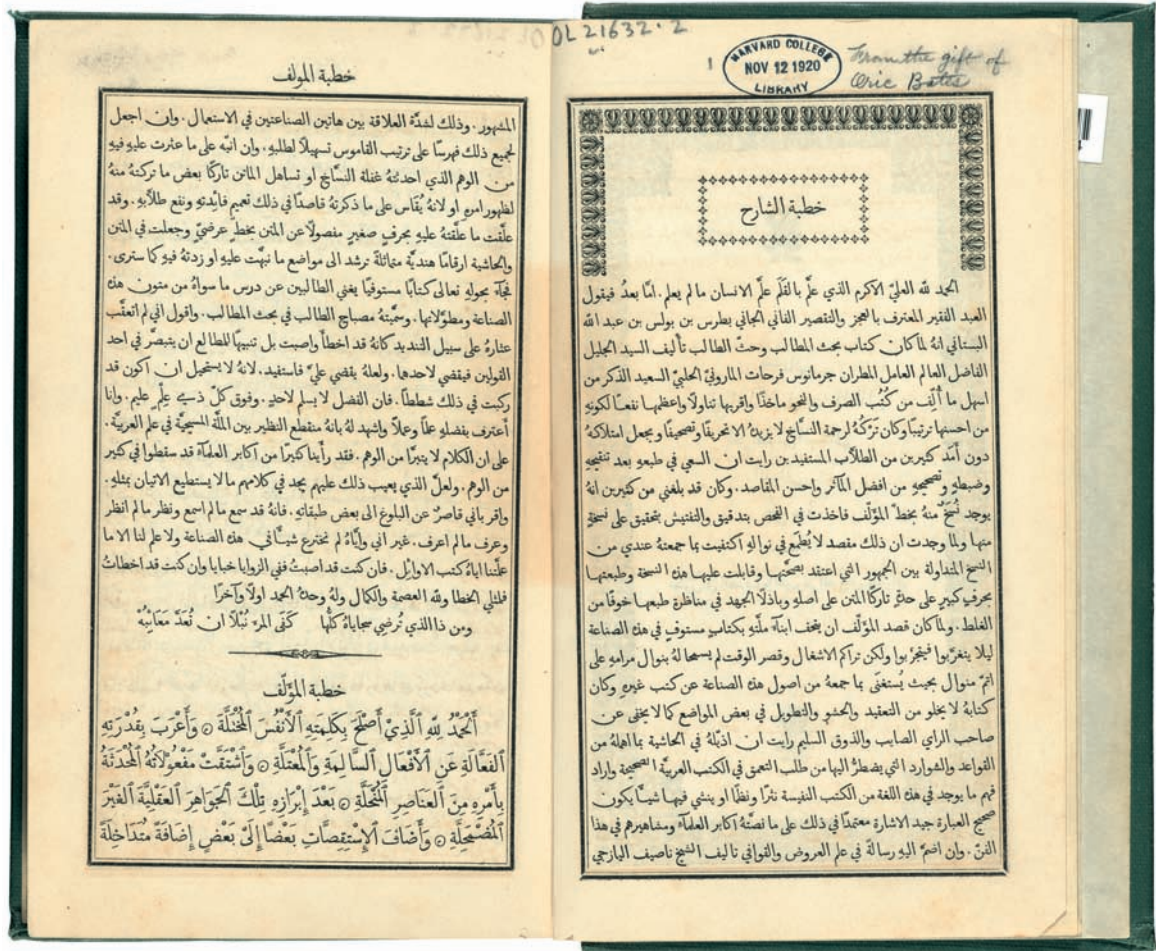 OL 21632.2
1
HARVARD COLLEGE
NOV 12 1920
LIBRARY
From the gift of
Oric Bates
خطبة الشارح
الحمد لله العليّ الاكرم الذي علَّم بالقلَم علَّم الانسان ما لم يعلم. امَّا بعدُ فيقول
العبد الفقير المعترف بالعجز والتقصير الفاني الجاني بطرس بن بولس بن عبد الله
البستاني انهُ لمَّا كان كتاب بحث المطالب وحثّ الطالب تأليف السيد الجليل
الفاضل العالم العامل المطران جرمانوس فرحات المارونيّ الحلبيّ السعيد الذكر من
اسهل ما أُلِّف من كُتُب الصرف والنحو ماخذًا واقربها تناولًا واعظمها نفعًا لكونهِ
من احسنها ترتيبًا وكان تَرْكهُ لرحمة النسَّاخ لا يزيدهُ الا تحريفًا وتصحيفًا ويجعل امتلاكهُ
دون أَمَد كثيرين من الطلَّاب المستفيدين رايت ان السعي في طبعهِ بعد تنقيحهِ
وضبطهِ وتصحيحهِ من افضل المآثر واحسن المقاصد. وكان قد بلغني من كثيرين انهُ
يوجد نُسَخٌ منهُ بخطّ المؤلّف فاخذت في الفحص بتدقيق والتفتيش بتحقيق على نسخةٍ
منها ولما وجدت ان ذلك مقصد لا يُطمَع في نوالهِ اكتفيت بما جمعتهُ عندي من
النسخ المتداولة بين الجمهور التي اعتقد بصحَّتها وقابلت عليها هذه النسخة وطبعتها
بحرفٍ كبير على حدةٍ تاركًا المتن على اصلهِ وباذلًا الجهد في مناظرة طبعها خوفًا من
الغلط. ولمَّا كان قصد المؤلّف ان يتحف ابناءَ ملَّتهِ بكتابٍ مستوفٍ في هذه الصناعة
ليلا يتغرَّبوا فيتجرَّبوا ولكن تراكم الاشغال وقصر الوقت لم يسمحا لهُ بنوال مرامهِ على
اتمّ منوال بحيث يُستغنَى بما جمعهُ من اصول هذه الصناعة عن كتب غيرهِ وكان
كتابهُ لا يخلو من التعقيد والحشو والتطويل في بعض المواضع كما لا يخفى عن
صاحب الراي الصايب والذوق السليم رايت ان اذيّلهُ في الحاشية بما اهملهُ من
القواعد والشوارد التي يضطرُّ اليها من طلب التعمق في الكتب العربيَّة الصحيحة واراد
فهم ما يوجد في هذه اللغة من الكتب النفيسة نثرًا ونظمًا او ينشي فيها شيئًا يكون
صحيح العبارة جيد الاشارة معتمدًا في ذلك على ما نصَّتهُ اكابر العلماءِ ومشاهيرهم في هذا
الفنّ. وان اضمّ اليهِ رسالةً في علم العروض والقوافي تاليف الشيخ ناصيف اليازجي
خطبة المولف
المشهور. وذلك لشدَّة العلاقة بين هاتين الصناعتين في الاستعمال. وان اجعل
لجميع ذلك فهرسًا على ترتيب القاموس تسهيلًا لطلبهِ. وان انبّه على ما عثرت عليهِ فيهِ
من الوهم الذي احدثتهُ غفلة النسَّاخ او تساهل الماتن تاركًا بعض ما تركتهُ منهُ
لظهور امرهِ او لانهُ يُقَاس على ما ذكرتهُ قاصدًا في ذلك تعميم فائدتهِ ونفع طلَّابهِ. وقد
علَّقت ما علَّقتهُ عليهِ بحرفٍ صغيرٍ مفصولًا عن المتن بخطٍّ عرضيٍّ وجعلت في المتن
والحاشية ارقامًا هنديَّة متماثلةً ترشد الى مواضع ما نبهّت عليهِ او زدتهُ فيهِ كما سترى.
فجآءَ بحولهِ تعالى كتابًا مستوفيًا يغني الطالبين عن درس ما سواهُ من متون هذه
الصناعة ومطوَّلاتها. وسمَّيتهُ مصباح الطالب في بحث المطالب. واقول اني لم اتعقَّب
عثارهُ على سبيل التنديد كانهُ قد اخطأَ واصبت بل تنبيهًا للمطالع ان يتبصَّر في احد
القولين فيقضي لاحدها. ولعلهُ يقضي عليَّ فاستفيد. لانهُ لا يستحيل ان اكون قد
ركبت في ذلك شططًا. فان الفضل لا يسلم لاحدٍ. وفوق كلّ ذي علمٍ عليم. وانا
اعترف بفضلهِ علمًا وعملًا واشهد لهُ بانهُ منقطع النظير بين الملَّة المسيحيَّة في علم العربيَّة.
على ان الكلام لا يتبرَّا من الوهم. فقد رأَينا كثيرًا من اكابر العلمآءِ قد سقطوا في كثير
من الوهم. ولعلَّ الذي يعيب ذلك عليهم يجد في كلامهم ما لا يستطيع الاتيان بمثلهِ.
واقر باني قاصرٌ عن البلوغ الى بعض طبقاتهِ. فانهُ قد سمع ما لم اسمع ونظر ما لم انظر
وعرف ما لم اعرف. غير اني وايَّاهُ لم نخترع شيئًا في هذه الصناعة ولا علم لنا الا ما
علَّمنا اياهُ كتب الاوايل. فان كنت قد اصبت ففي الزوايا خبايا وان كنت قد اخطات
فلمثلي الخطا ولله العصمة والكمال ولهُ وحدهُ الحمد اولًا وآخرًا
ومن ذا الذي تُرضي سجاياهُ كلُّها كَفَى المرءَ نُبْلًا ان تُعَدَّ مَعَائِبُهْ
خطبة المؤلّف
أَلْحَمْدُ لِلّٰهِ ٱلَّذِيْ أَصْلَحَ بِكَلِمَتِهِ ٱلْأَنْفُسَ ٱلْمُخْتَلَّةَ ۞ وَأَعْرَبَ بِقُدْرَتِهِ
ٱلْفَعَّالَةِ عَنِ ٱلْأَفْعَالِ ٱلسَّالِمَةِ وَٱلْمُعْتَلَّةِ ۞ وَٱشْتَقَّتْ مَفْعُولَاتُهُ ٱلْمُحْدَثَةُ
بِأَمْرِهِ مِنَ ٱلْعَنَاصِرِ ٱلْمُنْحَلَّةِ ۞ بَعْدَ إِبْرَازِهِ تِلْكَ ٱلْجَوَاهِرَ ٱلْعَقْلِيَّةَ ٱلْغَيْرَ
ٱلْمُضْمَحِلَّةِ ۞ وَأَضَافَ ٱلْإِسْتِقِصَّاتِ بَعْضًا إِلَى بَعْضٍ إِضَافَةً مُتَدَاخِلَةً